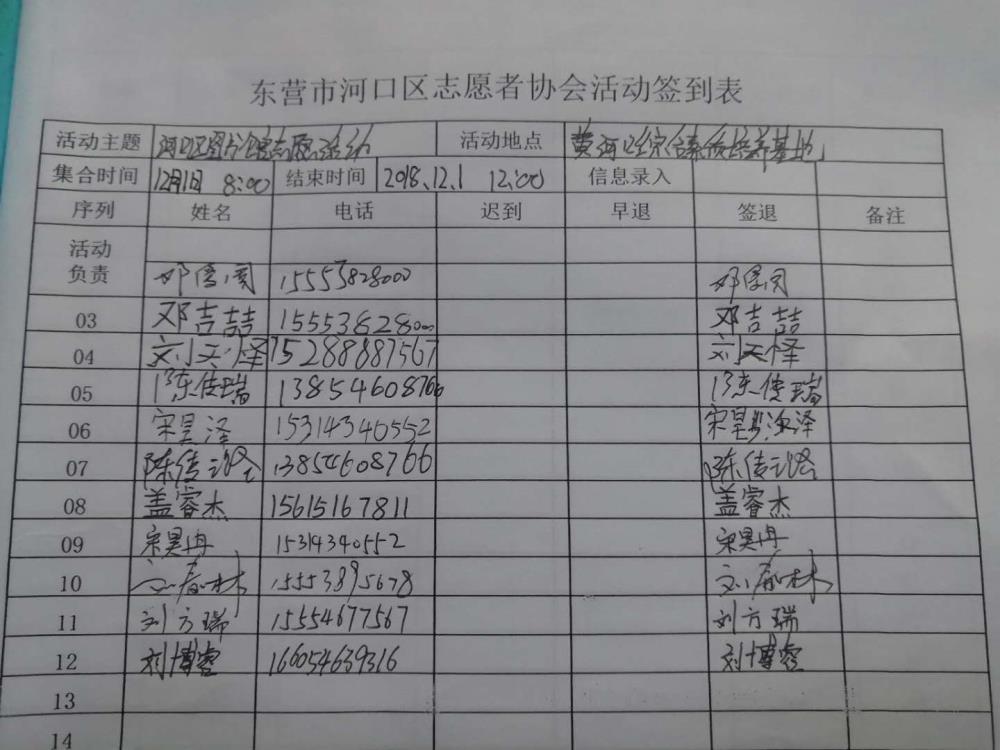 东营市河口区志愿者协会活动签到表
活动主题 河口区图书馆志愿活动 活动地点 黄河口综合素质培养基地
集合时间 12月1日 8:00 结束时间 2018.12.1 12:00 信息录入
序列 姓名 电话 迟到 早退 签退 备注
活动
负责 15553828000
03 邓吉喆 15553828000 邓吉喆
04 刘天怿 15288887567 刘天怿
05 陈传瑞 13854608766 陈传瑞
06 宋昊泽 15314340552 宋昊泽
07 陈传 13854608766 陈传
08 盖睿杰 15615167811 盖睿杰
09 宋昊冉 15314340552 宋昊冉
10 刘春林 15553895678 刘春林
11 刘方瑞 15554677567 刘方瑞
12 刘博睿 166054639316 刘博睿
13
14